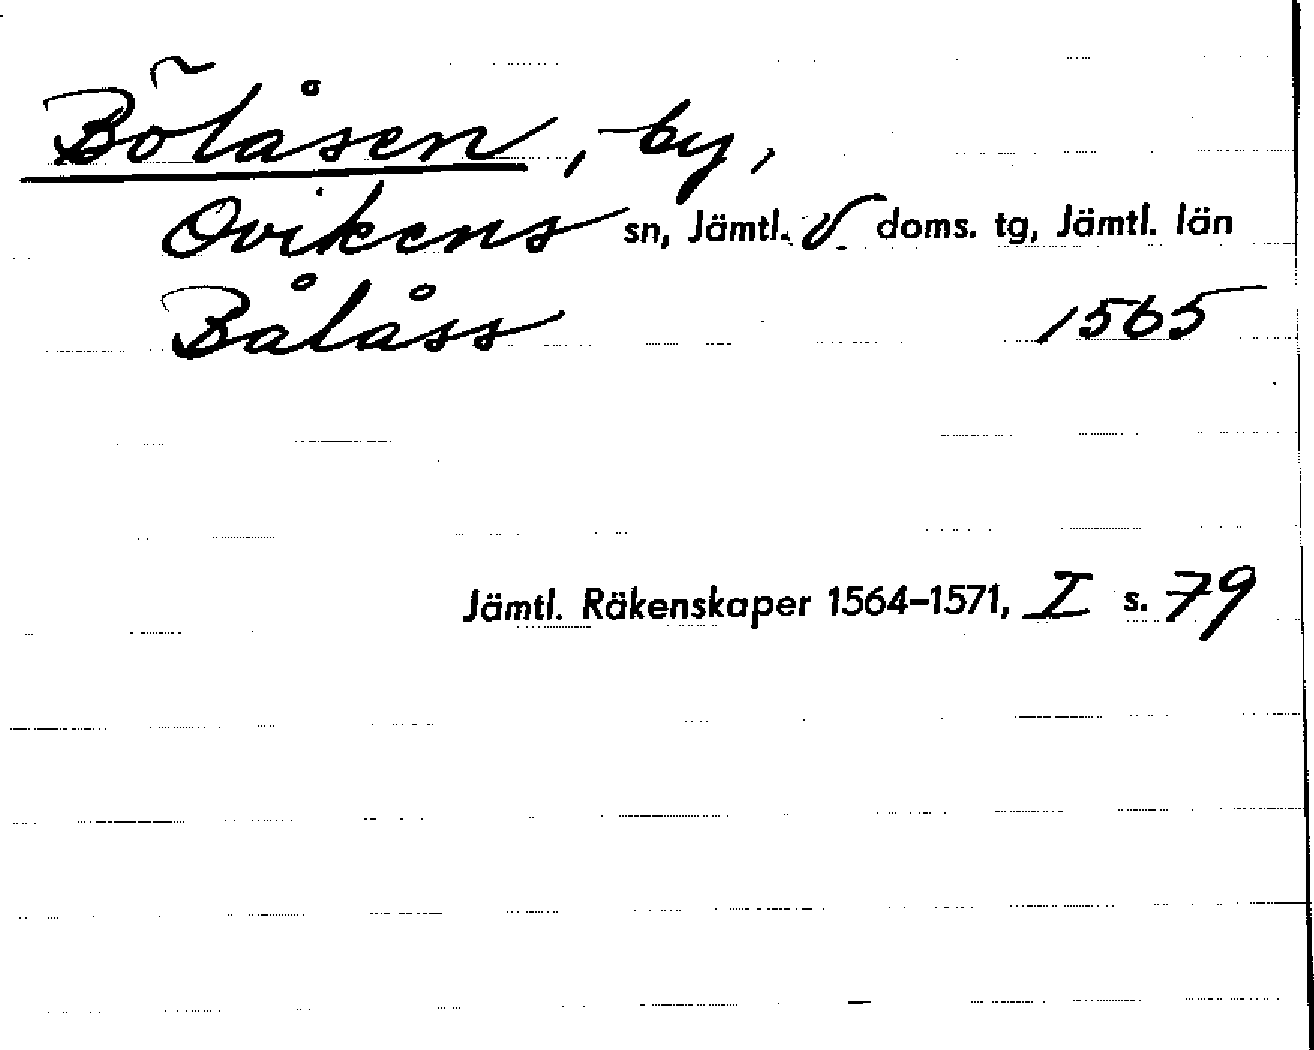 Bölåsen, by,
Ovikens sn, Jämtl. v. doms. tg, Jämtl. län
Bålåss 1565
Jämtl. Räkenskaper 1564-1571, I s. 79